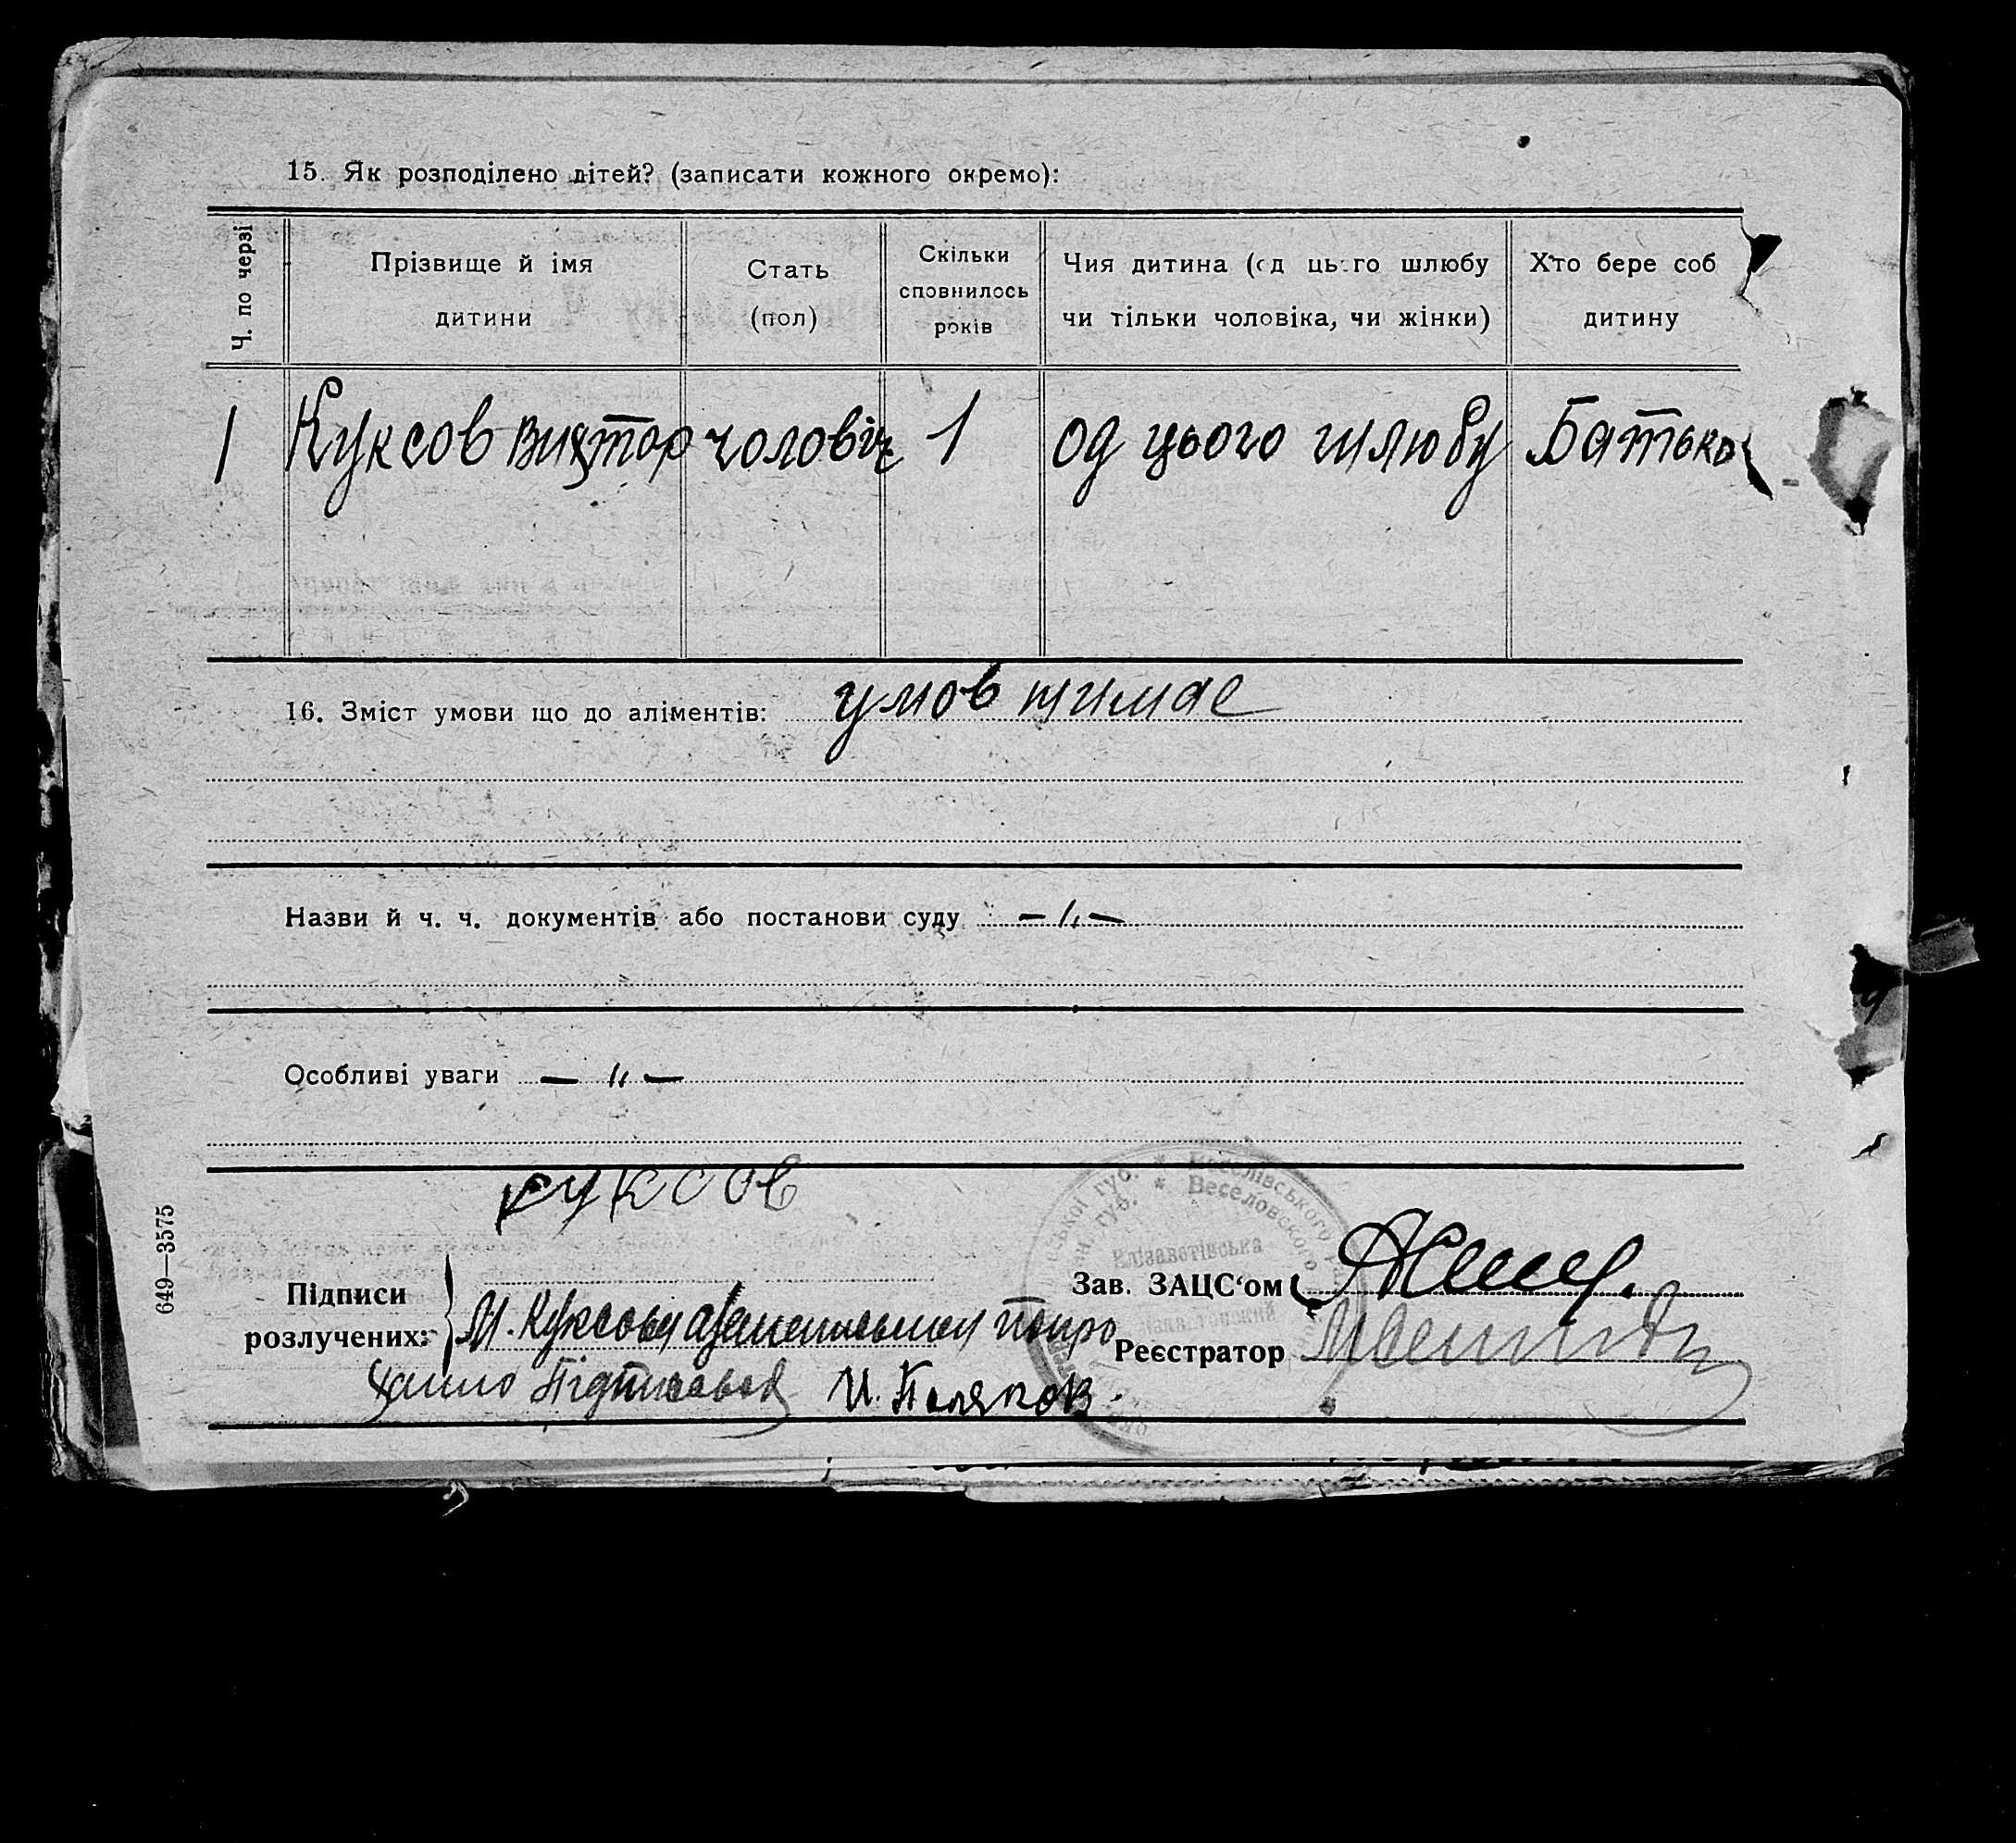 15. Як розподілено дітей? (записати кожного окремо):
Ч. по черзі
Прізвище й імя дитини
Стать (пол)
Скільки сповнилось років
Чия дитина (од цього шлюбу чи тільки чоловіка, чи жінки)
Хто бере соб дитину
1 Куксов Виктор чоловіч 1 од цього шлюбу Батько
16. Зміст умови що до аліментів: умов
Назви й ч. ч. документів або постанови суду —„—
Особливі уваги —„—
Куксов
Підписи
розлучених:
Зав. ЗАЦС‘ом
М. Куксову
Реєстратор
И. Поляков.
Веселовского
Єлізаветівська
649—3575